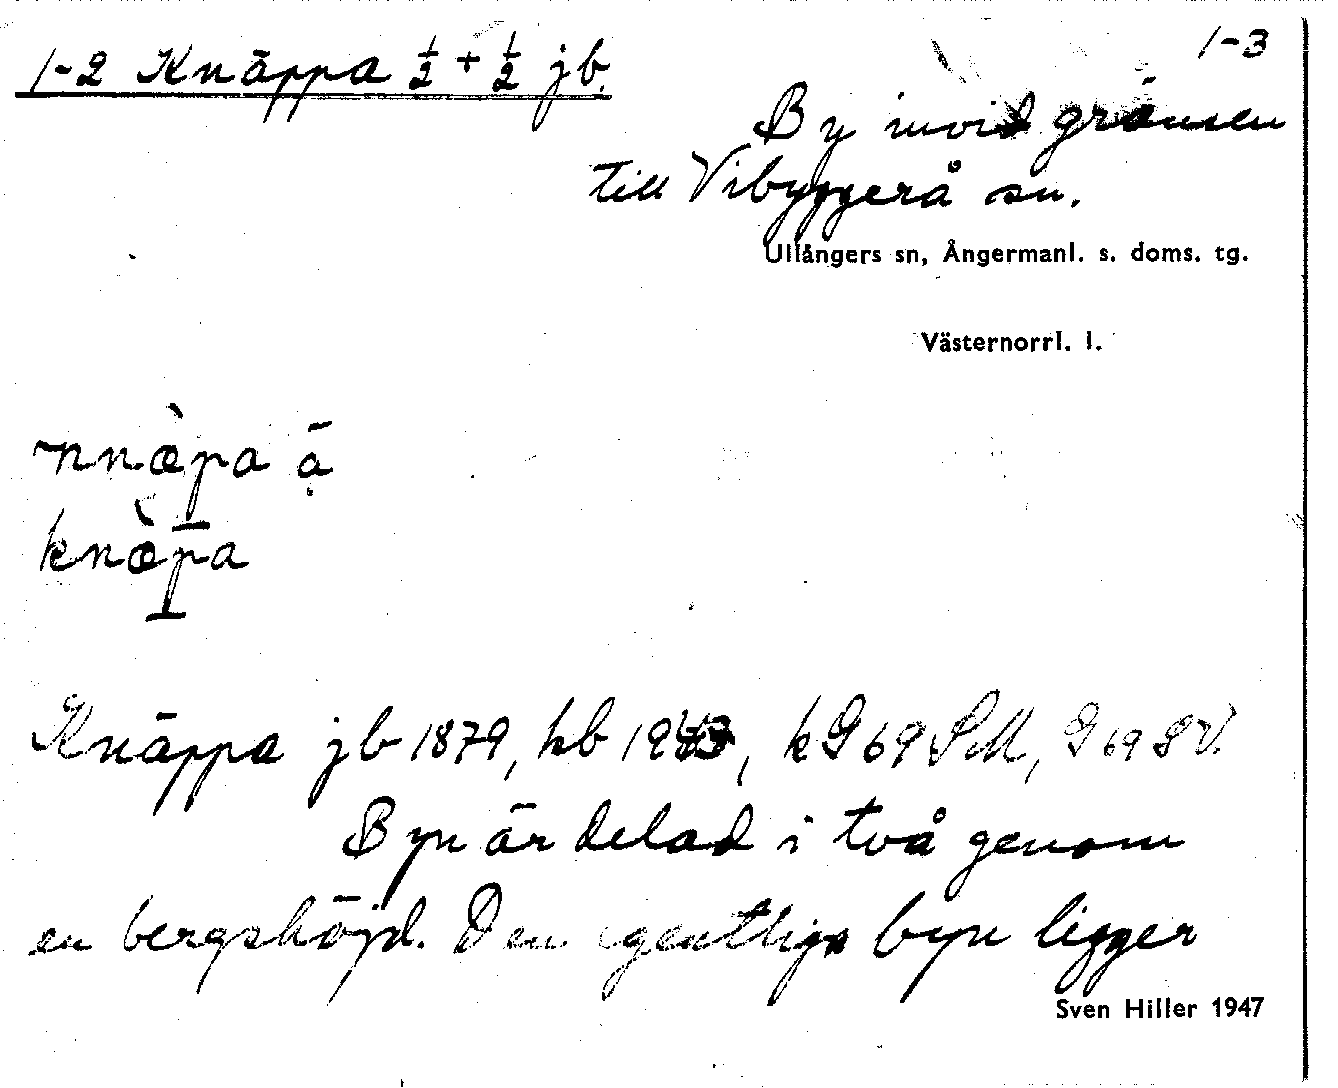 1-3
1-2 Knäppa ½ + ½ jb.
By invid gränsen
till Vibyggerå sn.
Ullångers sn, Ångermanl. s. doms. tg.
Västernorrl. l.
Knäppa jb 1879, hb 1943, kG 69 SM, G 69 SV.
Byn är delad i två genom
en bergshöjd. Den egentliga byn ligger
Sven Hiller 1947